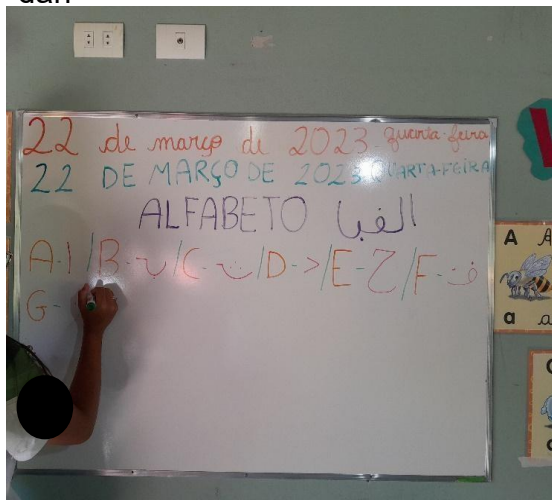 22 de março de 2023 quarta-feira
22 DE MARÇO DE 2023 QUARTA-FEIRA
ALFABETO الفبا
A-ا/B-ب/C-ت/D->/E-ح/F-ف
G-
A
a a